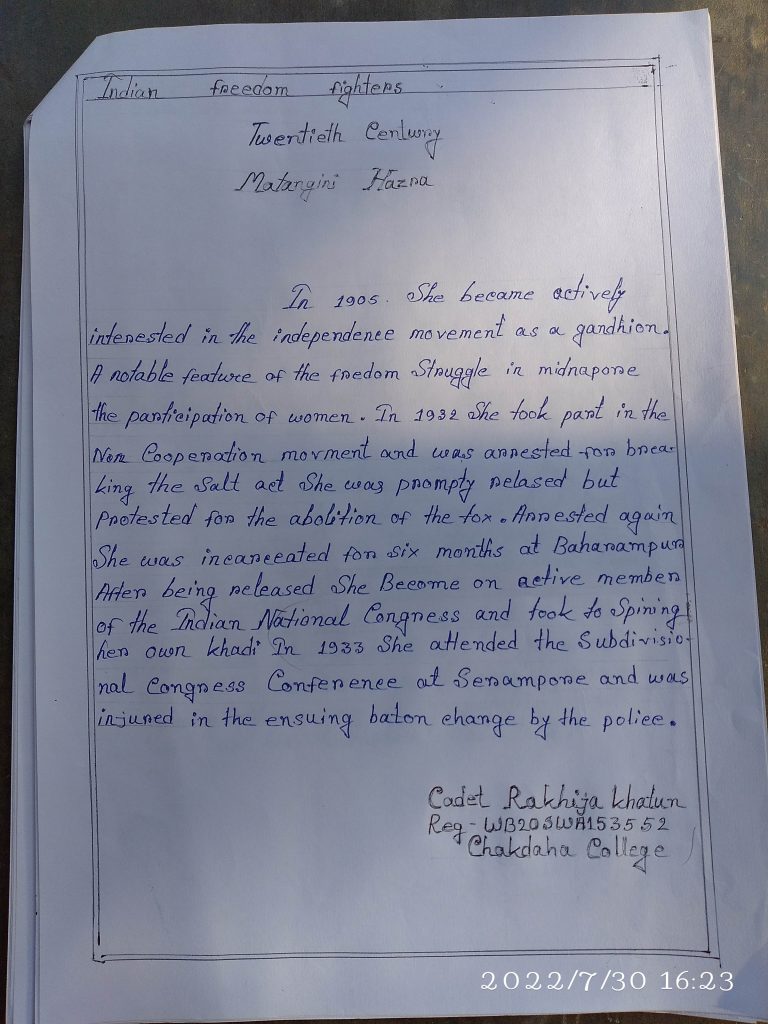 Indian freedom fighters
Twentieth Century
Matangini Hazra
In 1905. She became actively
interested in the independence movement as a gandhion.
A notable feature of the fredom Struggle in midnapore
the participation of women. In 1932 She took part in the
Non Cooperation movrment and was arrested for brea-
king the Salt act She was prompty relased but
Protested for the abolition of the tox. Arrested again
She was incarceated for six months at Baharampur
After being released She Become on active member
of the Indian National Congress and took to Spining
her own khadi In 1933 She attended the Subdivisio-
nal Congress Conference at Serampore and was
injured in the ensuing baton charge by the police.
Cadet Rakhija Khatun
Reg - WB20SWA153552
Chakdaha College
2022/7/30 16:23